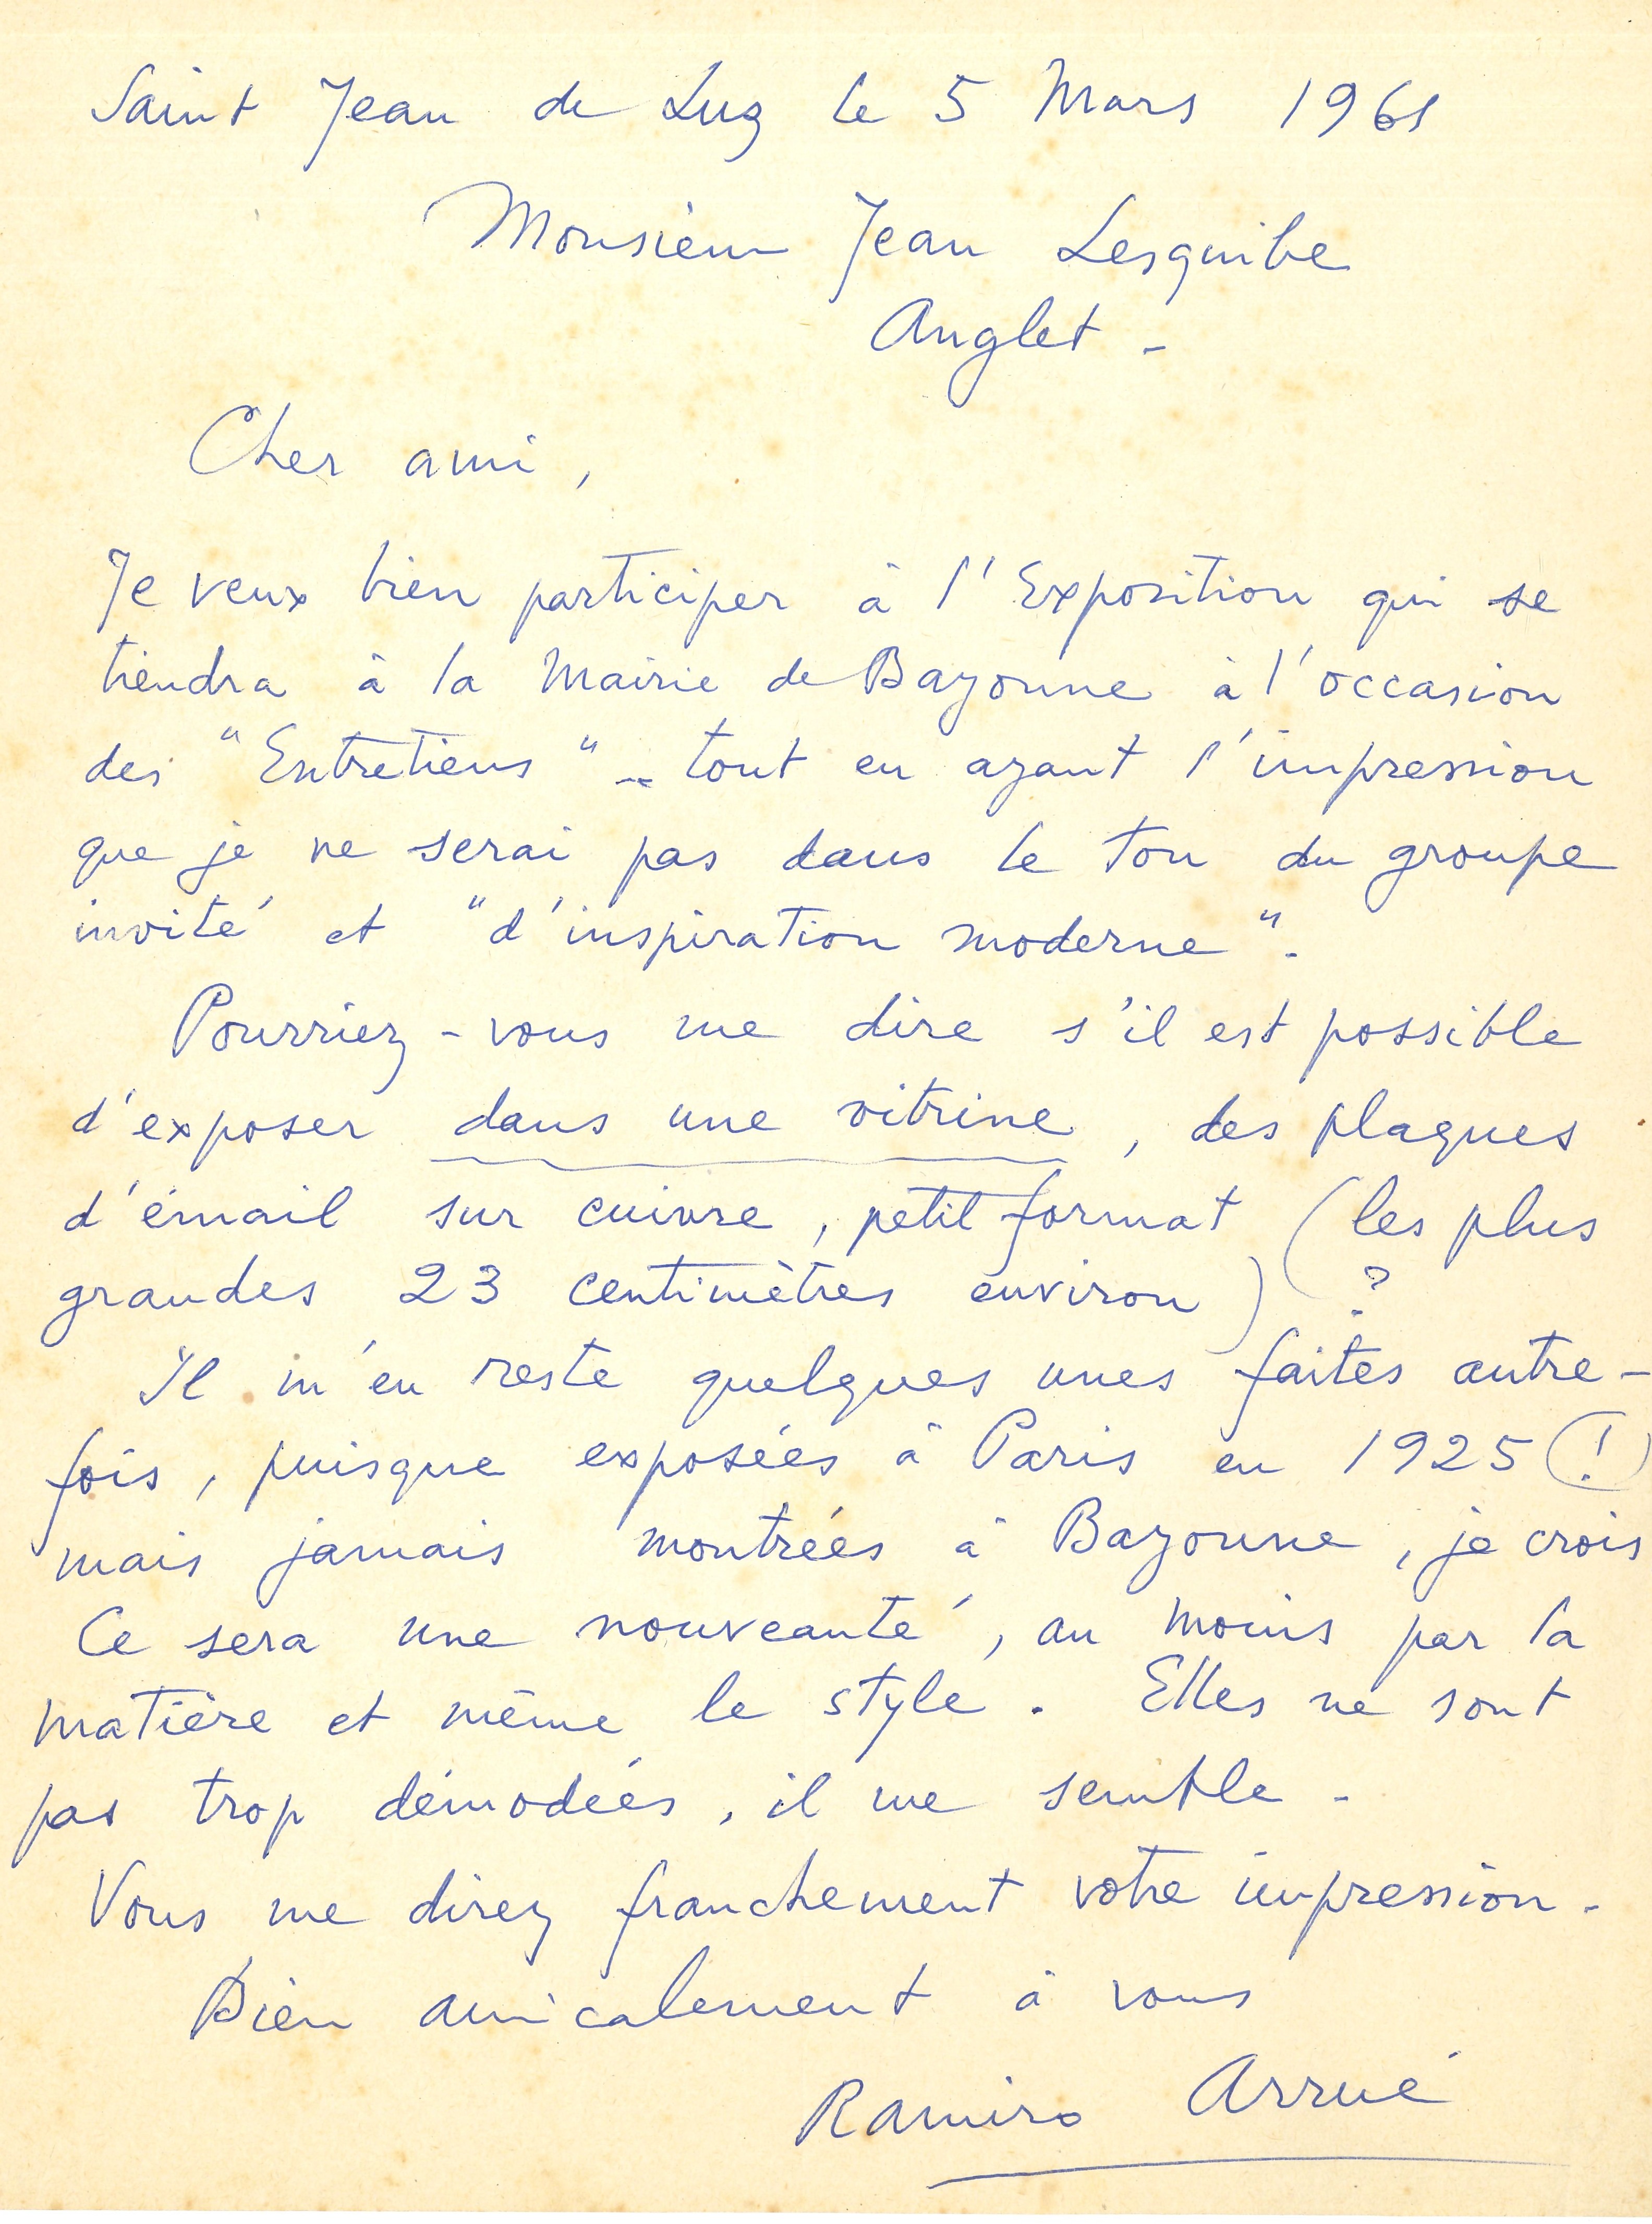 Saint Jean de Luz le 5 Mars 1961
Monsieur Jean Lesquibe
Anglet -
Cher ami,
Je veux bien participer à l'Exposition qui se
tiendra à la Mairie de Bayonne à l'occasion
des "Entretiens" - tout en ayant l'impression
que je ne serai pas dans le ton du groupe
invité et "d'inspiration moderne".
Pourriez-vous me dire s'il est possible
d'exposer dans une vitrine, des plaques
d'émail sur cuivre, petit format (les plus
grandes 23 centimètres environ) ?
Il m'en reste quelques unes faites autre-
fois, puisque exposées à Paris en 1925 (!)
mais jamais montrées à Bayonne, je crois
Ce sera une nouveauté, au moins par la
matière et même le style. Elles ne sont
pas trop démodées, il me semble -
Vous me direz franchement votre impression -
Bien amicalement à vous
Ramiro Arrué